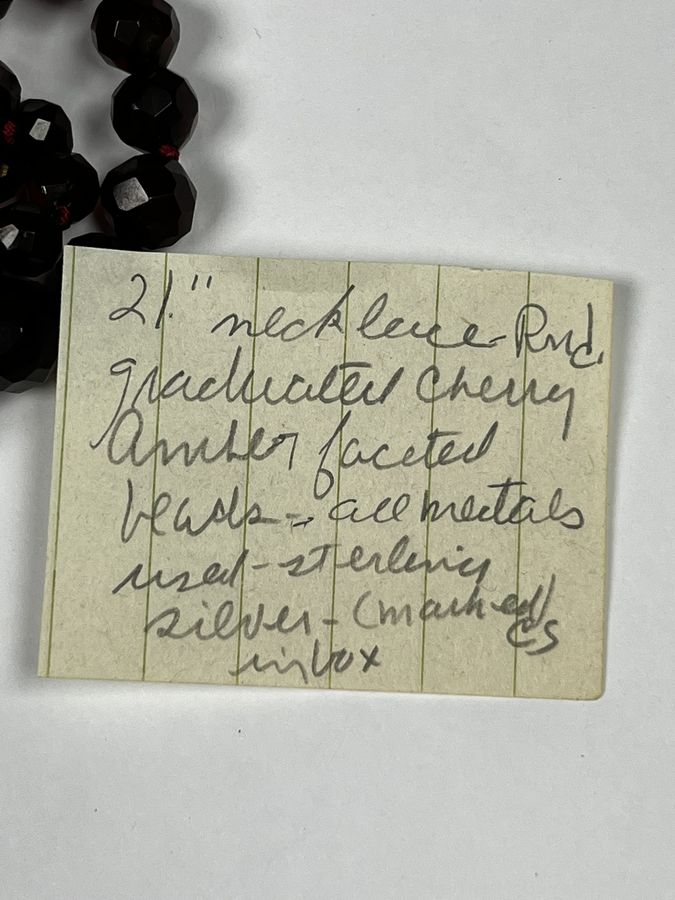 21." necklace - Rnd.
graduated Cherry
Amber faceted
beads - all metals
used - sterling
silver - (marked)
CS
in box